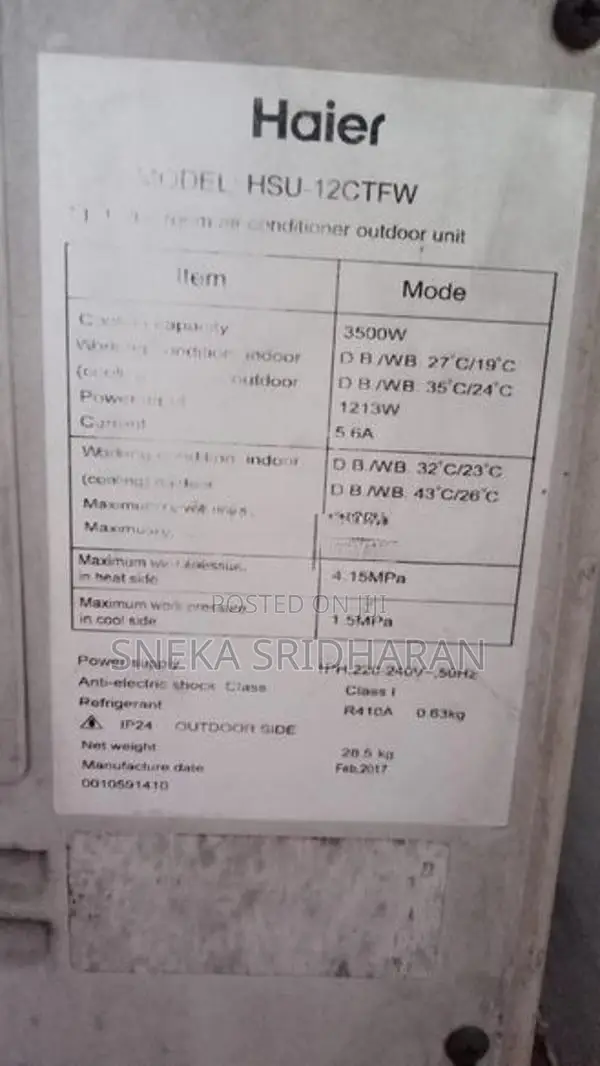 Haier
MODEL HSU-12CTFW
room air conditioner outdoor unit
Item Mode
Cooling capacity 3500W
Working condition indoor D.B./WB. 27°C/19°C
outdoor D.B./WB. 35°C/24°C
Power 1213W
Current 5.6A
Working condition indoor D.B./WB. 32°C/23°C
(cooling) D.B./WB. 43°C/26°C
Maximum
Maximum
Maximum work pressure
in heat side 4.15MPa
Maximum work pressure
in cool side 1.5MPa
POSTED ON JIJI
SNEKA SRIDHARAN
Power supply 1PH,220-240V~,50Hz
Anti-electric shock Class Class I
Refrigerant R410A 0.63kg
IP24 OUTDOOR SIDE
Net weight 28.5 kg
Manufacture date Feb,2017
0010591410